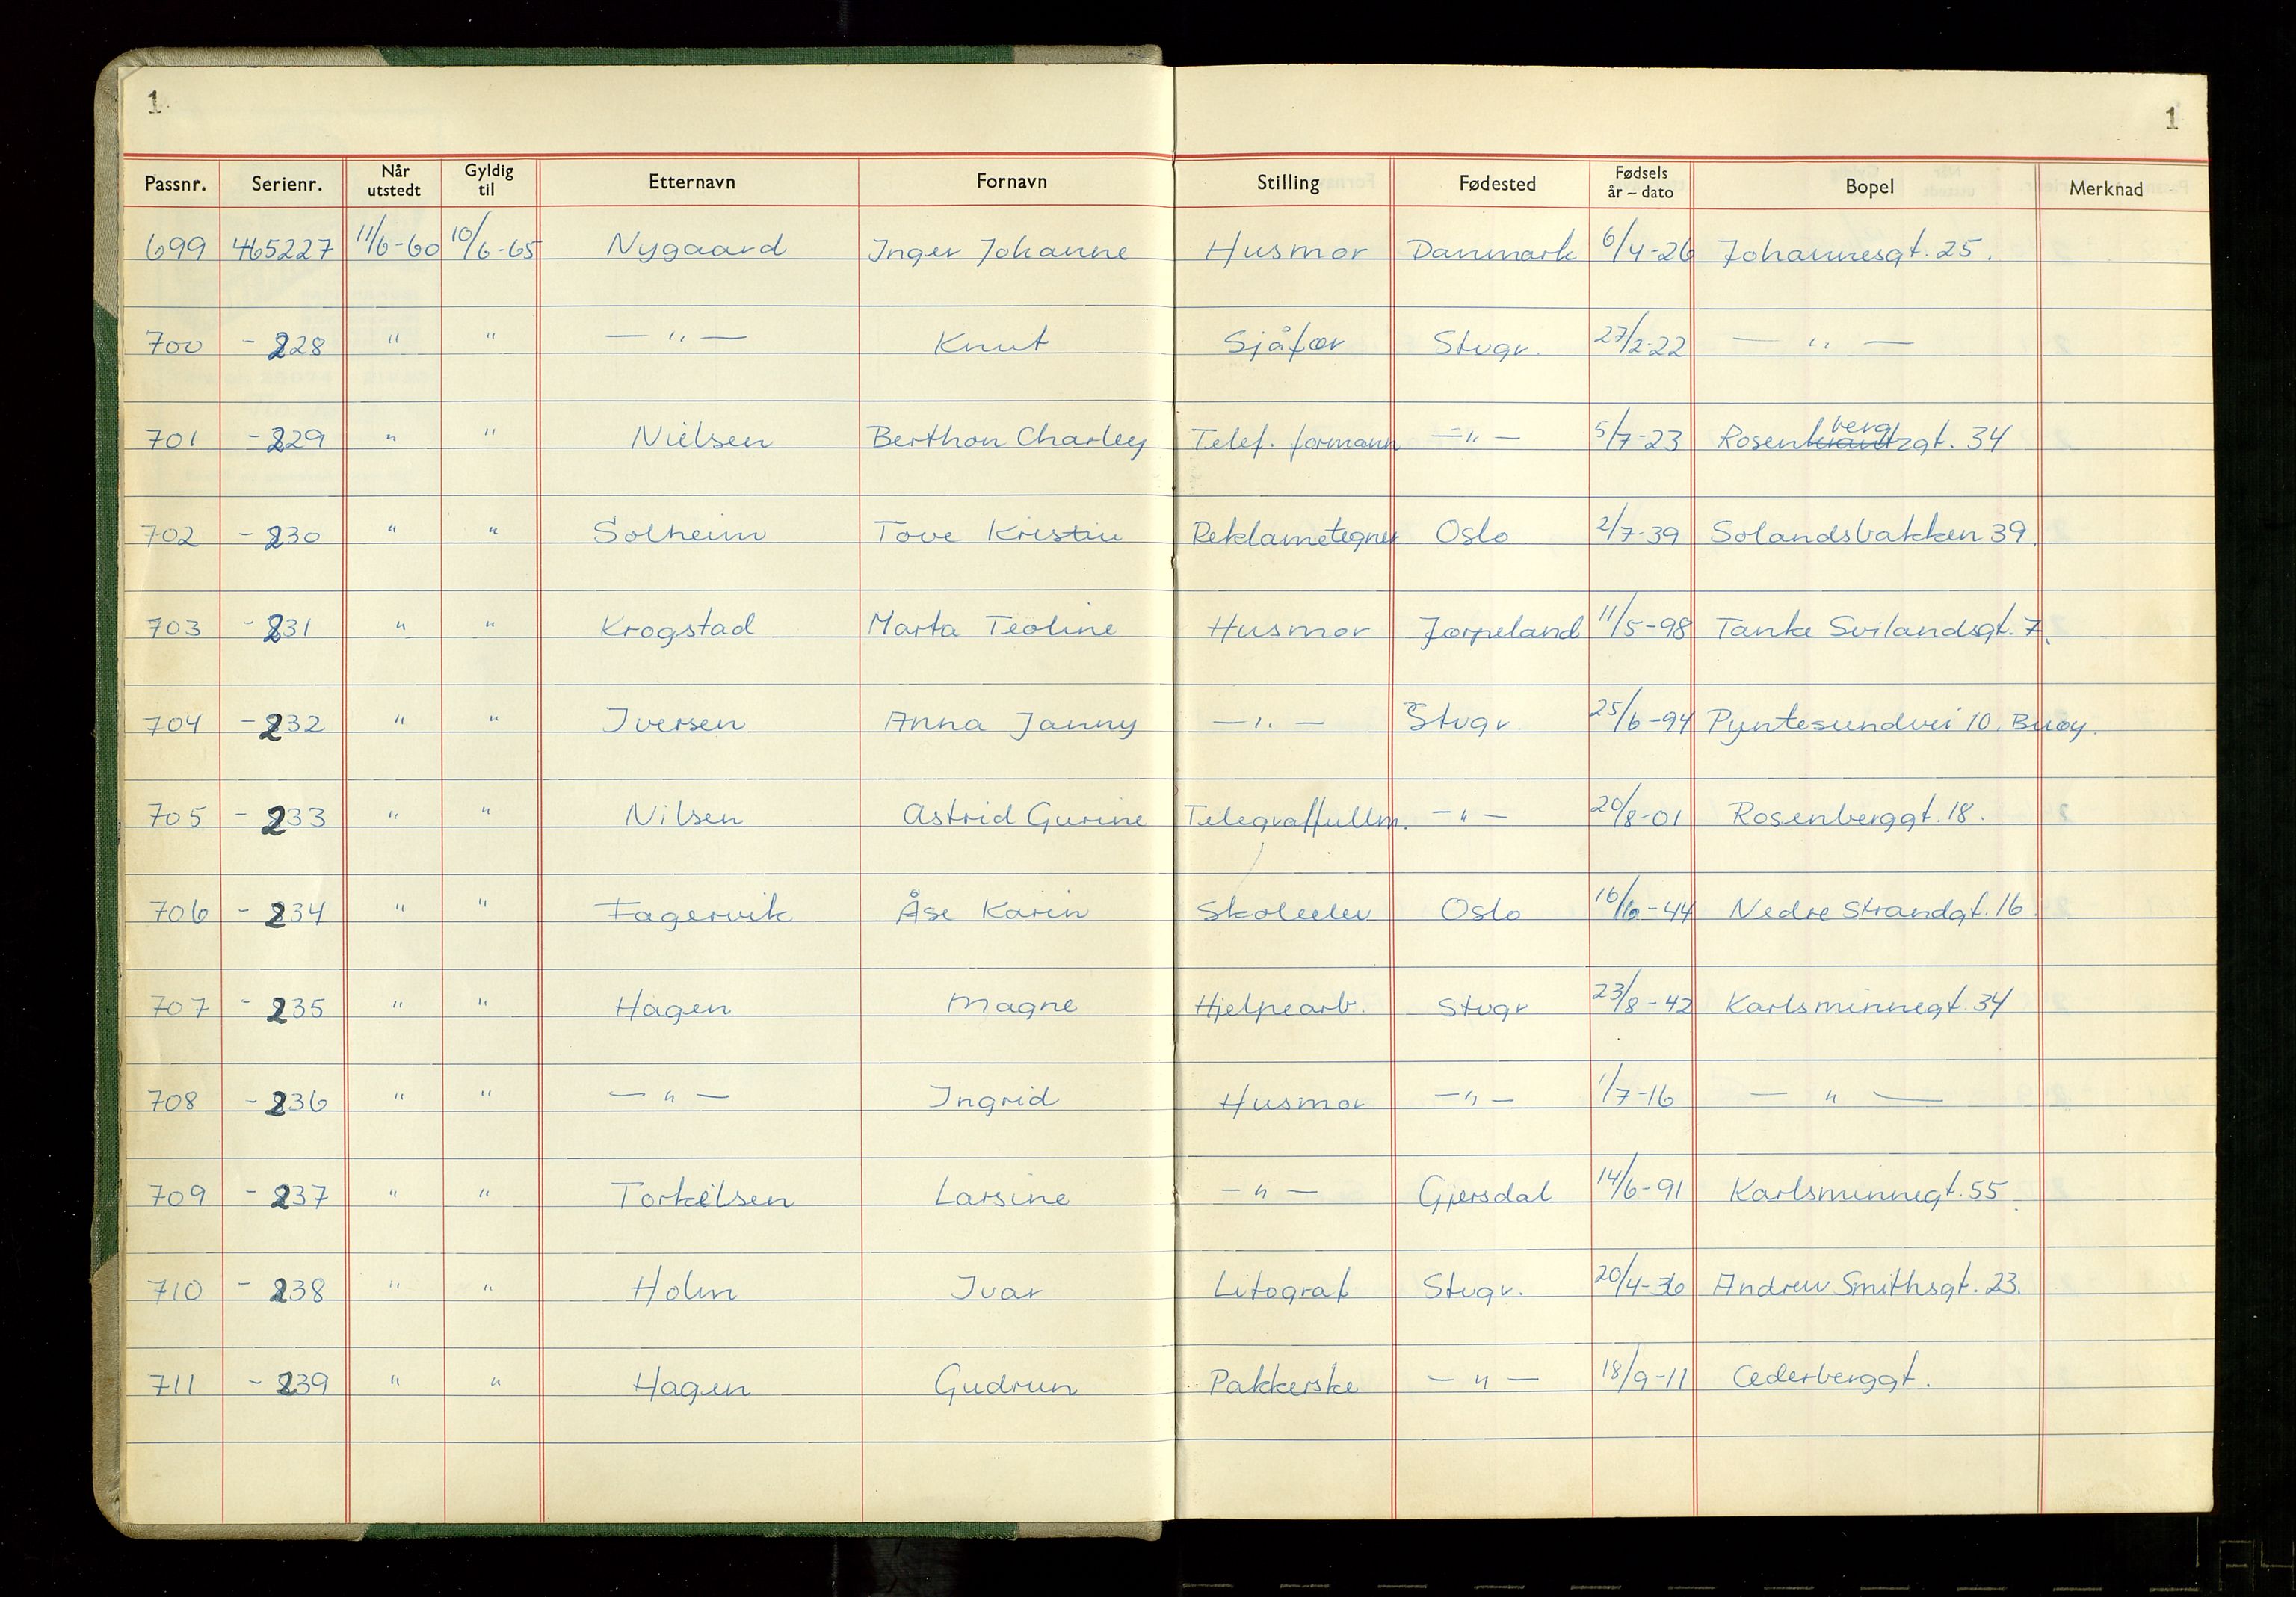 1 1
Passnr. Serienr. Når utstedt Gyldig til Etternavn Fornavn Stilling Fødested Fødsels år – dato Bopel Merknad
699 465227 11/6-60 10/6-65 Nygaard Inger Johanne Husmor Danmark 6/4-26 Johannesgt. 25.
700 - 228 " " — " — Knut Sjåfør Stvgr. 27/2-22 — " —
701 - 229 " " Nielsen Berthon Charley Telef. formann — " — 5/7-23 Rosenkrantzgt. 34 berg
702 - 230 " " Solheim Tove Kristin Reklametegner Oslo 2/7-39 Solandsbakken 39.
703 - 231 " " Krogstad Marta Teoline Husmor Jørpeland 11/5-98 Tanke Svilandsgt. 7.
704 - 232 " " Iversen Anna Janny — " — Stvgr. 25/6-94 Pyntesundvei 10. Buøy.
705 - 233 " " Nilsen Astrid Gurine Telegraffullm. — " — 20/8-01 Rosenberggt. 18.
706 - 234 " " Fagervik Åse Karin Skoleelev Oslo 16/10-44 Nedre Strandgt. 16.
707 - 235 " " Hagen Magne Hjelpearb. Stvgr 23/8-42 Karlsminnegt. 34
708 - 236 " " — " — Ingrid Husmor — " — 1/7-16 — " —
709 - 237 " " Torkelsen Larsine — " — Gjesdal 14/6-91 Karlsminnegt. 55.
710 - 238 " " Holm Ivar Litograf Stvgr. 20/4-36 Andrew Smithsgt. 23.
711 - 239 " " Hagen Gudrun Pakkerske — " — 18/9-11 Cederberggt.